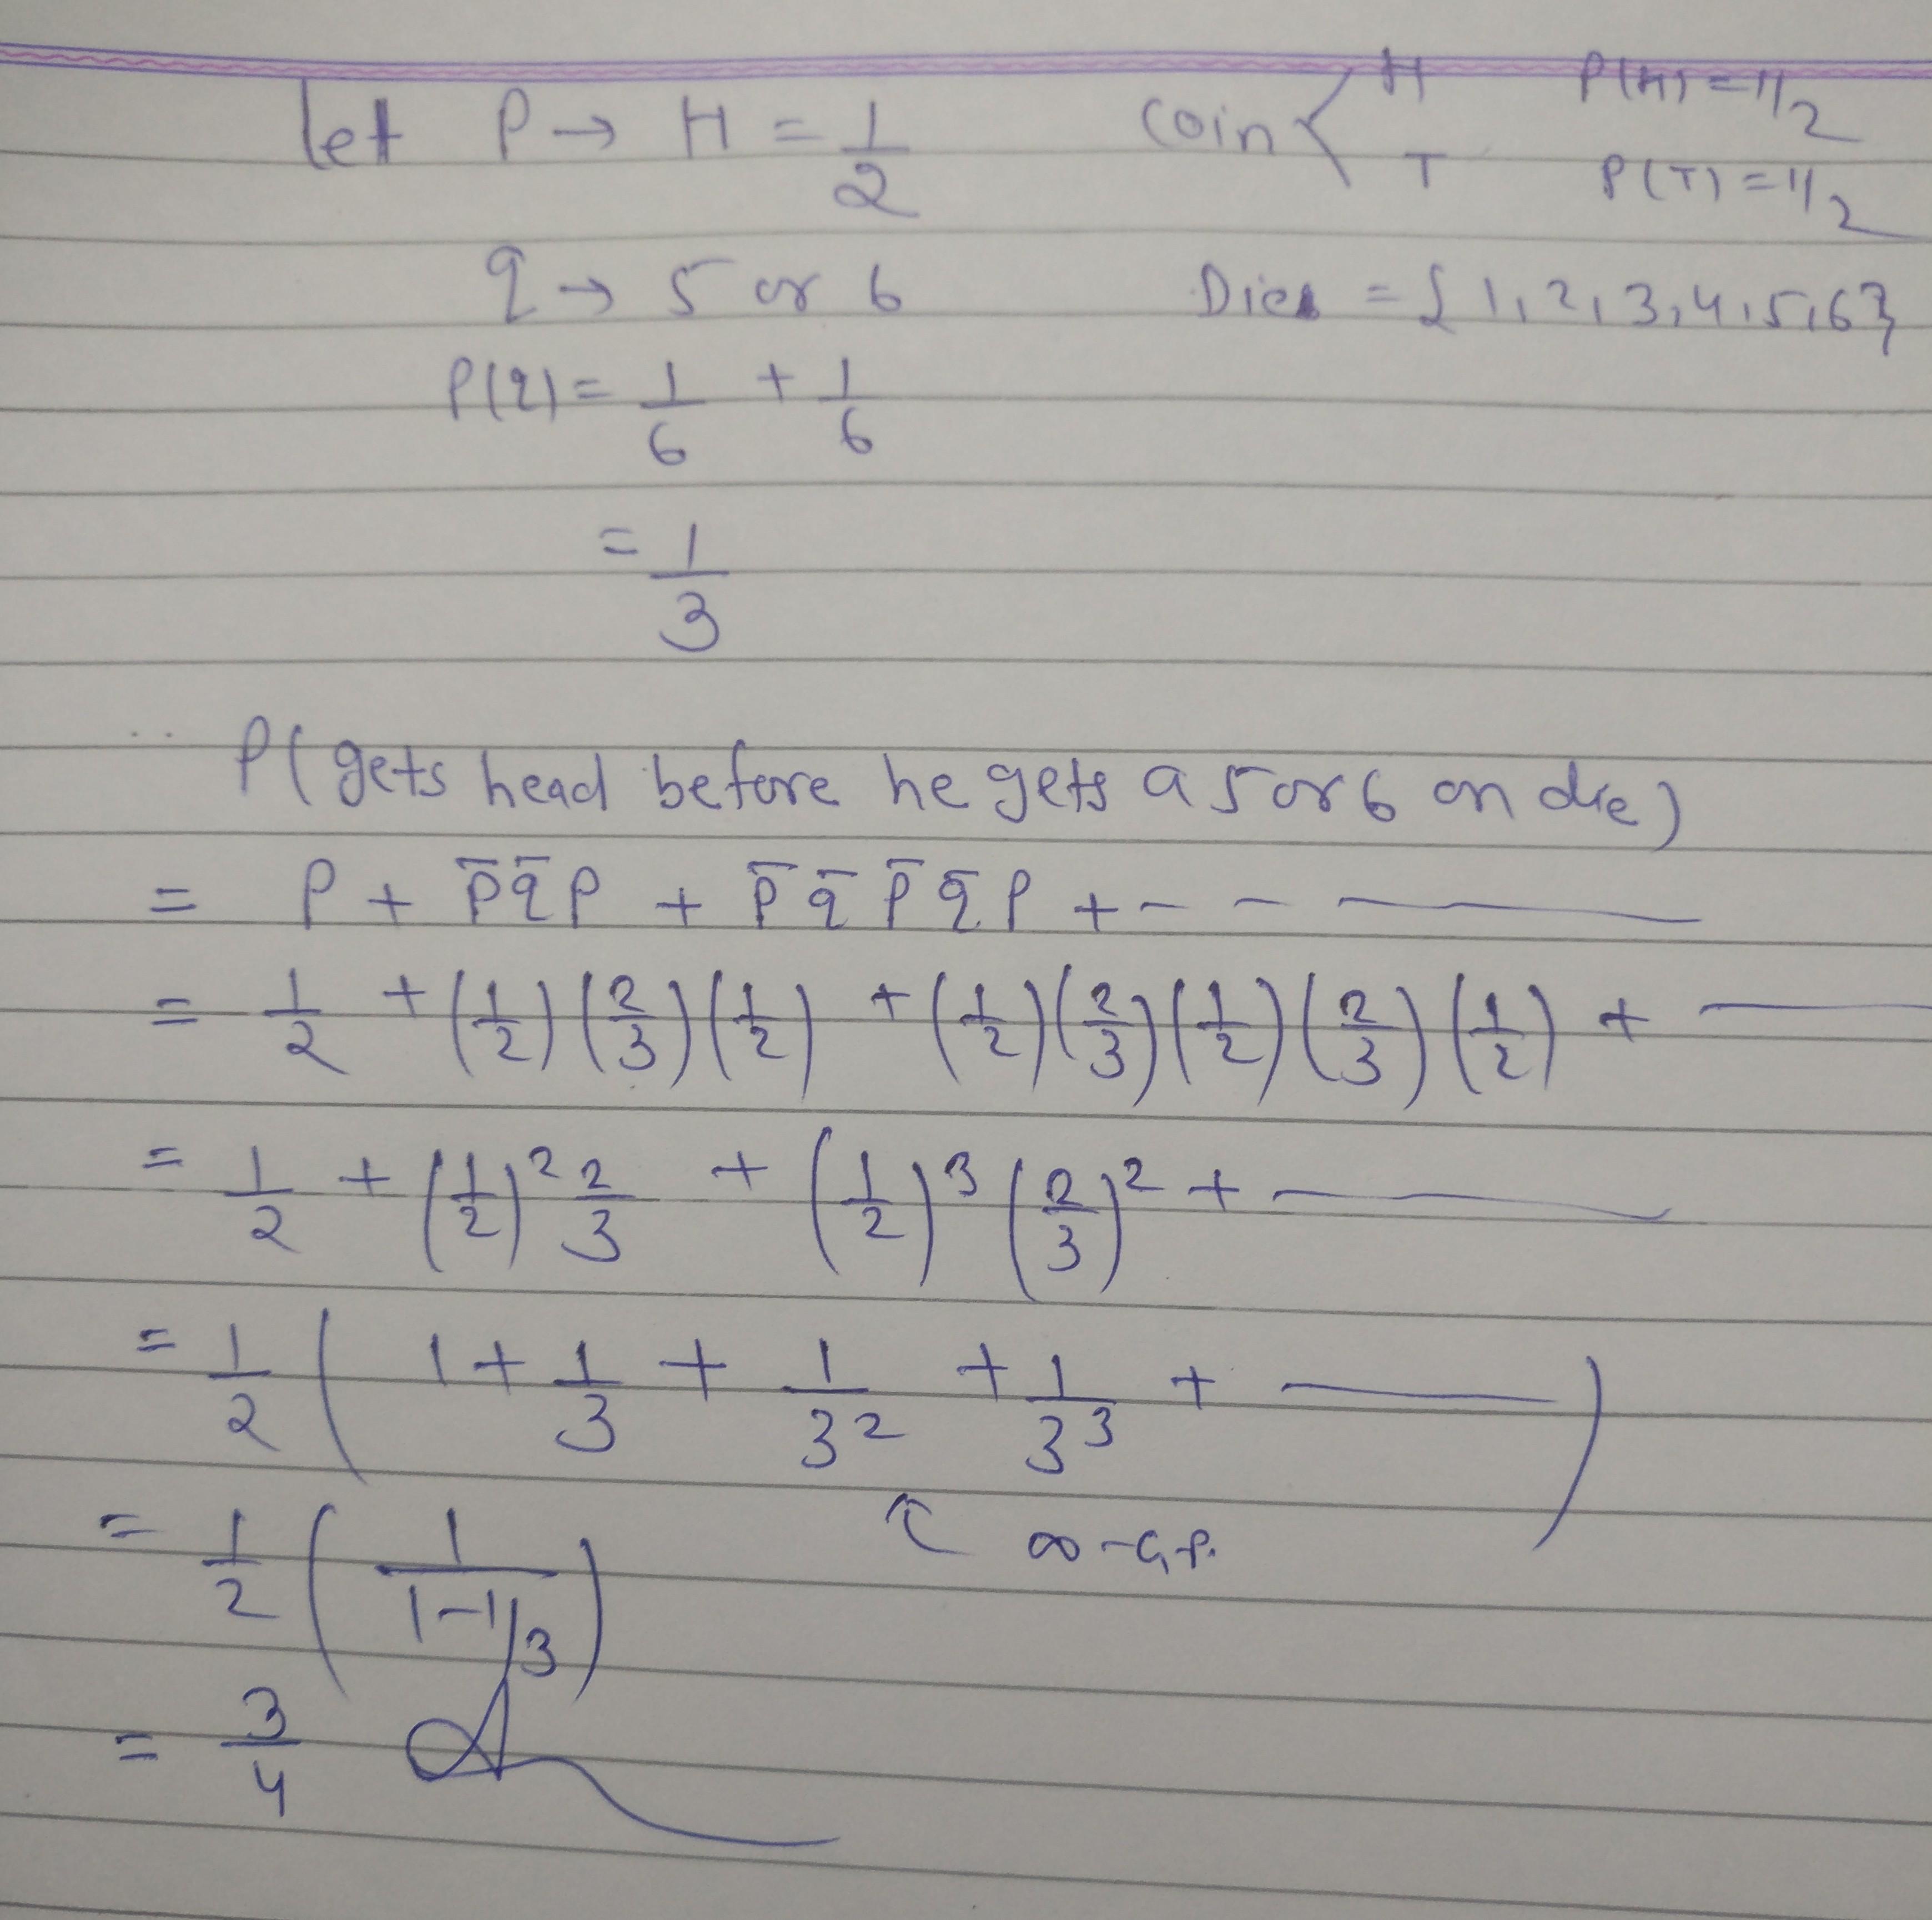 let P → H = 1/2 coin < H P(H) = 1/2
T P(T) = 1/2
q → 5 or 6 Dies = {1,2,3,4,5,6}
P(q) = 1/6 + 1/6
= 1/3
P( gets head before he gets a 5 or 6 on die)
= P + p̄ q̄ P + p̄ q̄ p̄ q̄ P + - - —
= 1/2 + (1/2)(2/3)(1/2) + (1/2)(2/3)(1/2)(2/3)(1/2) + —
= 1/2 + (1/2)² 2/3 + (1/2)³ (2/3)² + —
= 1/2 ( 1 + 1/3 + 1/3² + 1/3³ + — )
↖ ∞-G.P.
= 1/2 ( 1/(1-1/3) )
= 3/4